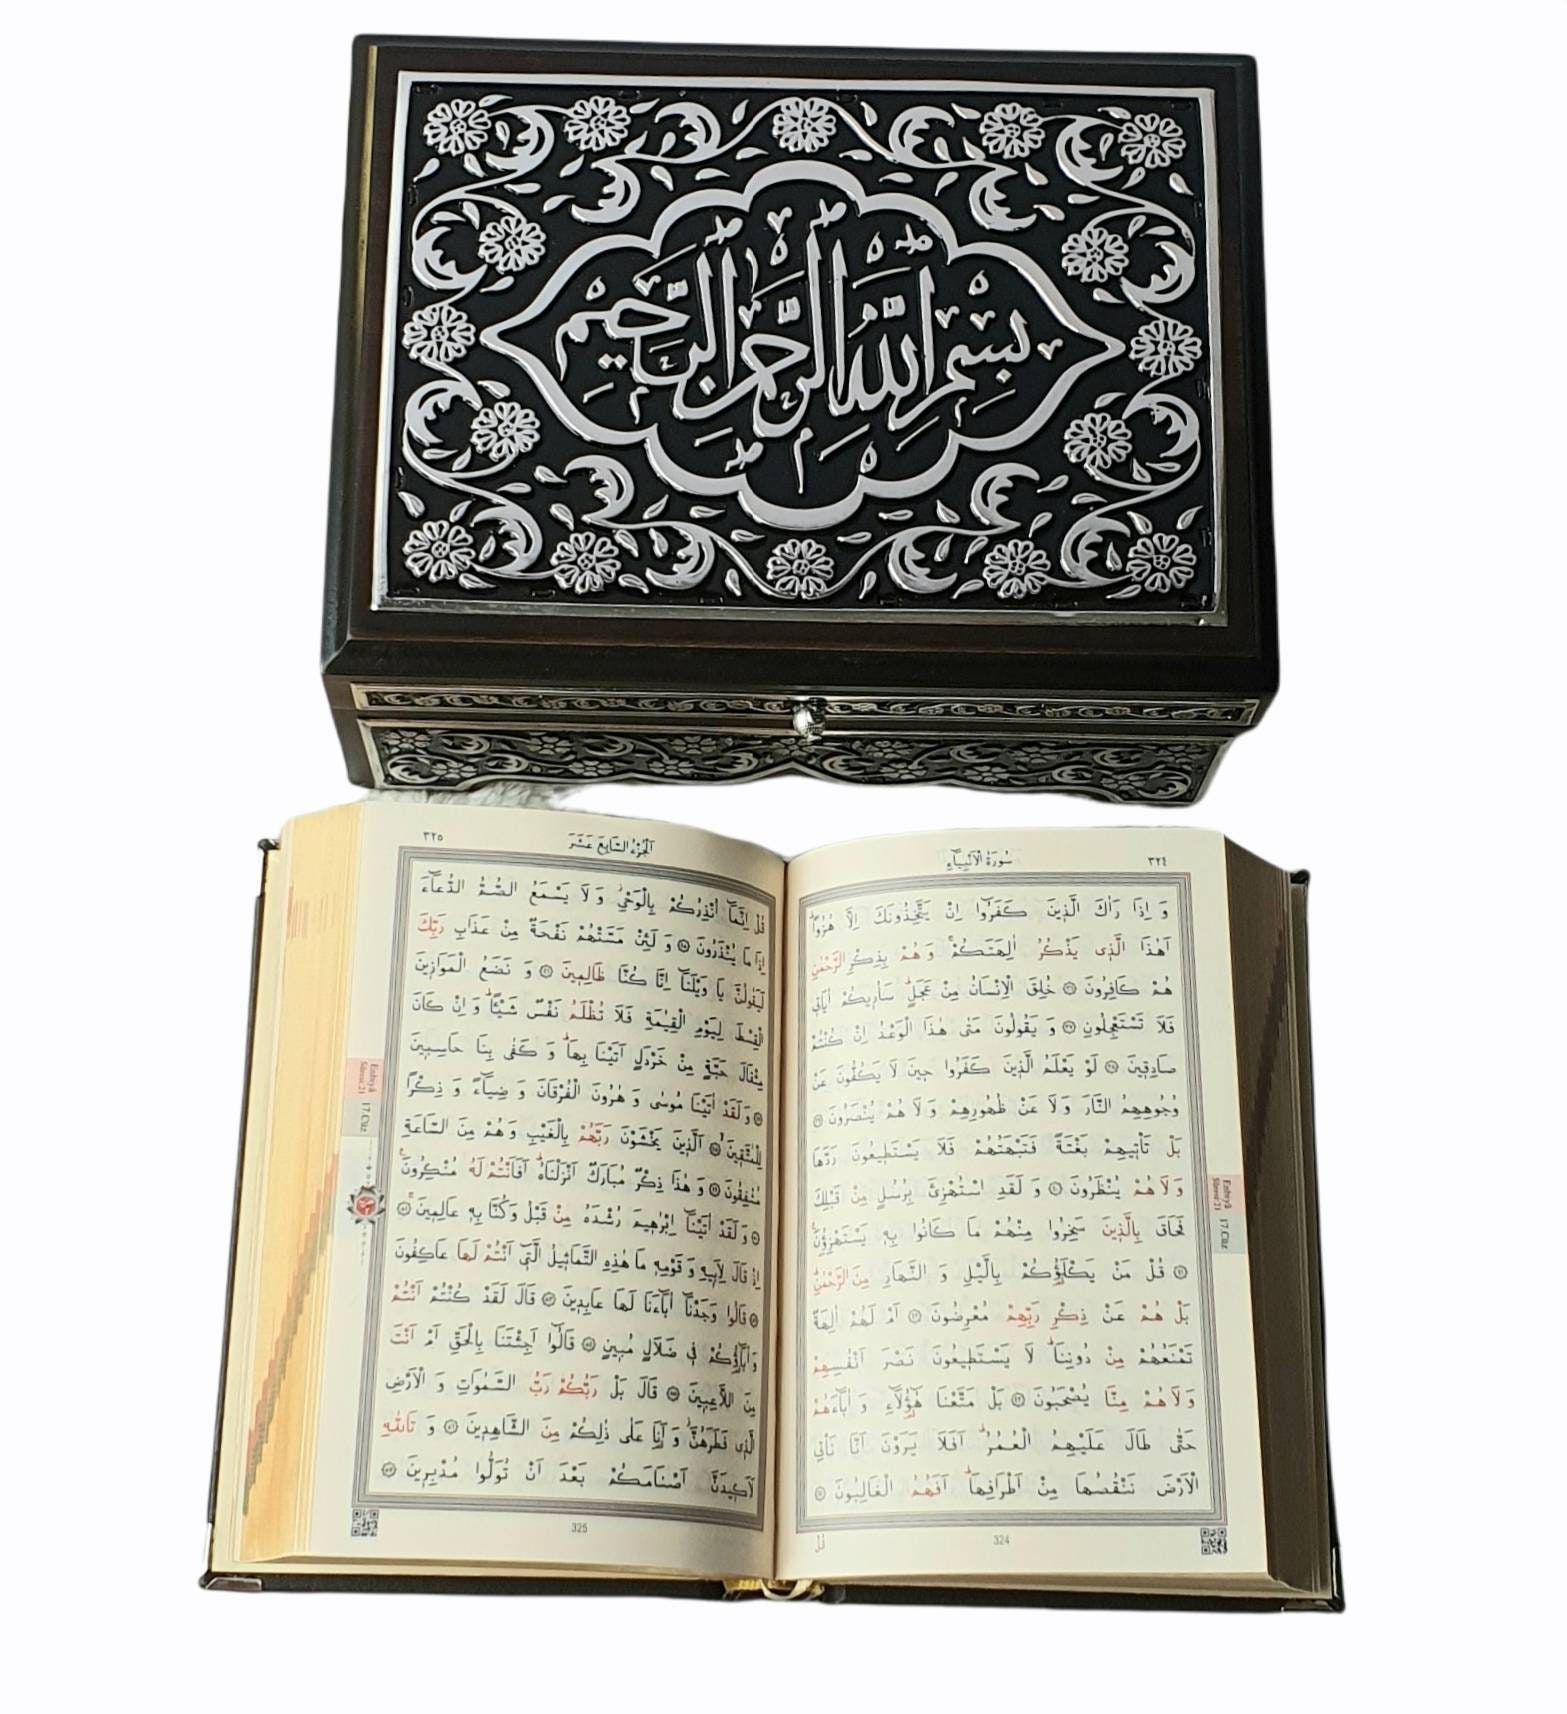 بِسْمِ اللّٰهِ الرَّحْمٰنِ الرَّحِيمِ
سُورَةُ الْاَنْبِيَاءِ ٣٢٤
وَ اِذَا رَاٰكَ الَّذِينَ كَفَرُٓوا اِنْ يَتَّخِذُونَكَ اِلَّا هُزُوًاۜ
اَهٰذَا الَّذِى يَذْكُرُ اٰلِهَتَكُمْۚ وَ هُمْ بِذِكْرِ الرَّحْمٰنِ
هُمْ كَافِرُونَ ۝٣٦ خُلِقَ الْاِنْسَانُ مِنْ عَجَلٍۜ سَاُرِيكُمْ اٰيَاتِى
فَلَا تَسْتَعْجِلُونِ ۝٣٧ وَ يَقُولُونَ مَتٰى هٰذَا الْوَعْدُ اِنْ كُنْتُمْ
صَادِقِينَ ۝٣٨ لَوْ يَعْلَمُ الَّذِينَ كَفَرُوا حِينَ لَا يَكُفُّونَ عَنْ
وُجُوهِهِمُ النَّارَ وَ لَا عَنْ ظُهُورِهِمْ وَ لَا هُمْ يُنْصَرُونَ ۝٣٩
بَلْ تَأْتِيهِمْ بَغْتَةً فَتَبْهَتُهُمْ فَلَا يَسْتَطِيعُونَ رَدَّهَا
وَ لَا هُمْ يُنْظَرُونَ ۝٤٠ وَ لَقَدِ اسْتُهْزِئَ بِرُسُلٍ مِنْ قَبْلِكَ
فَحَاقَ بِالَّذِينَ سَخِرُوا مِنْهُمْ مَا كَانُوا بِهِ يَسْتَهْزِؤُنَ
۝٤١ قُلْ مَنْ يَكْلَؤُكُمْ بِالَّيْلِ وَ النَّهَارِ مِنَ الرَّحْمٰنِۜ
بَلْ هُمْ عَنْ ذِكْرِ رَبِّهِمْ مُعْرِضُونَ ۝٤٢ اَمْ لَهُمْ اٰلِهَةٌ
تَمْنَعُهُمْ مِنْ دُونِنَاۜ لَا يَسْتَطِيعُونَ نَصْرَ اَنْفُسِهِمْ
وَ لَا هُمْ مِنَّا يُصْحَبُونَ ۝٤٣ بَلْ مَتَّعْنَا هٰٓؤُلَٓاءِ وَ اٰبَٓاءَهُمْ
حَتّٰى طَالَ عَلَيْهِمُ الْعُمُرُۜ اَفَلَا يَرَوْنَ اَنَّا نَأْتِى
الْاَرْضَ نَنْقُصُهَا مِنْ اَطْرَافِهَاۜ اَفَهُمُ الْغَالِبُونَ ۝٤٤
Enbiyâ
Sûresi 21
17.Cüz
324
قُلْ
اَلْجُزْءُ السَّابِعَ عَشَرَ ٣٢٥
قُلْ اِنَّمَٓا اُنْذِرُكُمْ بِالْوَحْىِۘ وَ لَا يَسْمَعُ الصُّمُّ الدُّعَٓاءَ
اِذَا مَا يُنْذَرُونَ ۝٤٥ وَ لَئِنْ مَسَّتْهُمْ نَفْحَةٌ مِنْ عَذَابِ رَبِّكَ
لَيَقُولُنَّ يَا وَيْلَنَٓا اِنَّا كُنَّا ظَالِمِينَ ۝٤٦ وَ نَضَعُ الْمَوَازِينَ
الْقِسْطَ لِيَوْمِ الْقِيٰمَةِ فَلَا تُظْلَمُ نَفْسٌ شَيْئًاۜ وَ اِنْ كَانَ
مِثْقَالَ حَبَّةٍ مِنْ خَرْدَلٍ اَتَيْنَا بِهَاۜ وَ كَفٰى بِنَا حَاسِبِينَ
۝٤٧ وَ لَقَدْ اٰتَيْنَا مُوسٰى وَ هٰرُونَ الْفُرْقَانَ وَ ضِيَٓاءً وَ ذِكْرًا
لِلْمُتَّقِينَۙ ۝٤٨ اَلَّذِينَ يَخْشَوْنَ رَبَّهُمْ بِالْغَيْبِ وَ هُمْ مِنَ السَّاعَةِ
مُشْفِقُونَ ۝٤٩ وَ هٰذَا ذِكْرٌ مُبَارَكٌ اَنْزَلْنَاهُۜ اَفَاَنْتُمْ لَهُ مُنْكِرُونَ۟
۝٥٠ وَ لَقَدْ اٰتَيْنَٓا اِبْرٰهِيمَ رُشْدَهُ مِنْ قَبْلُ وَ كُنَّا بِهِ عَالِمِينَۚ ۝٥١
اِذْ قَالَ لِاَبِيهِ وَ قَوْمِهِ مَا هٰذِهِ التَّمَاثِيلُ الَّتِٓى اَنْتُمْ لَهَا عَاكِفُونَ
۝٥٢ قَالُوا وَجَدْنَٓا اٰبَٓاءَنَا لَهَا عَابِدِينَ ۝٥٣ قَالَ لَقَدْ كُنْتُمْ اَنْتُمْ
وَ اٰبَٓاؤُكُمْ فِى ضَلَالٍ مُبِينٍ ۝٥٤ قَالُٓوا اَجِئْتَنَا بِالْحَقِّ اَمْ اَنْتَ
مِنَ اللَّاعِبِينَ ۝٥٥ قَالَ بَلْ رَبُّكُمْ رَبُّ السَّمٰوَاتِ وَ الْاَرْضِ
الَّذِى فَطَرَهُنَّۘ وَ اَنَا۬ عَلٰى ذٰلِكُمْ مِنَ الشَّاهِدِينَ ۝٥٦ وَ تَاللّٰهِ
لَاَكِيدَنَّ اَصْنَامَكُمْ بَعْدَ اَنْ تُوَلُّوا مُدْبِرِينَ ۝٥٧
Enbiyâ
Sûresi 21
17.Cüz
325